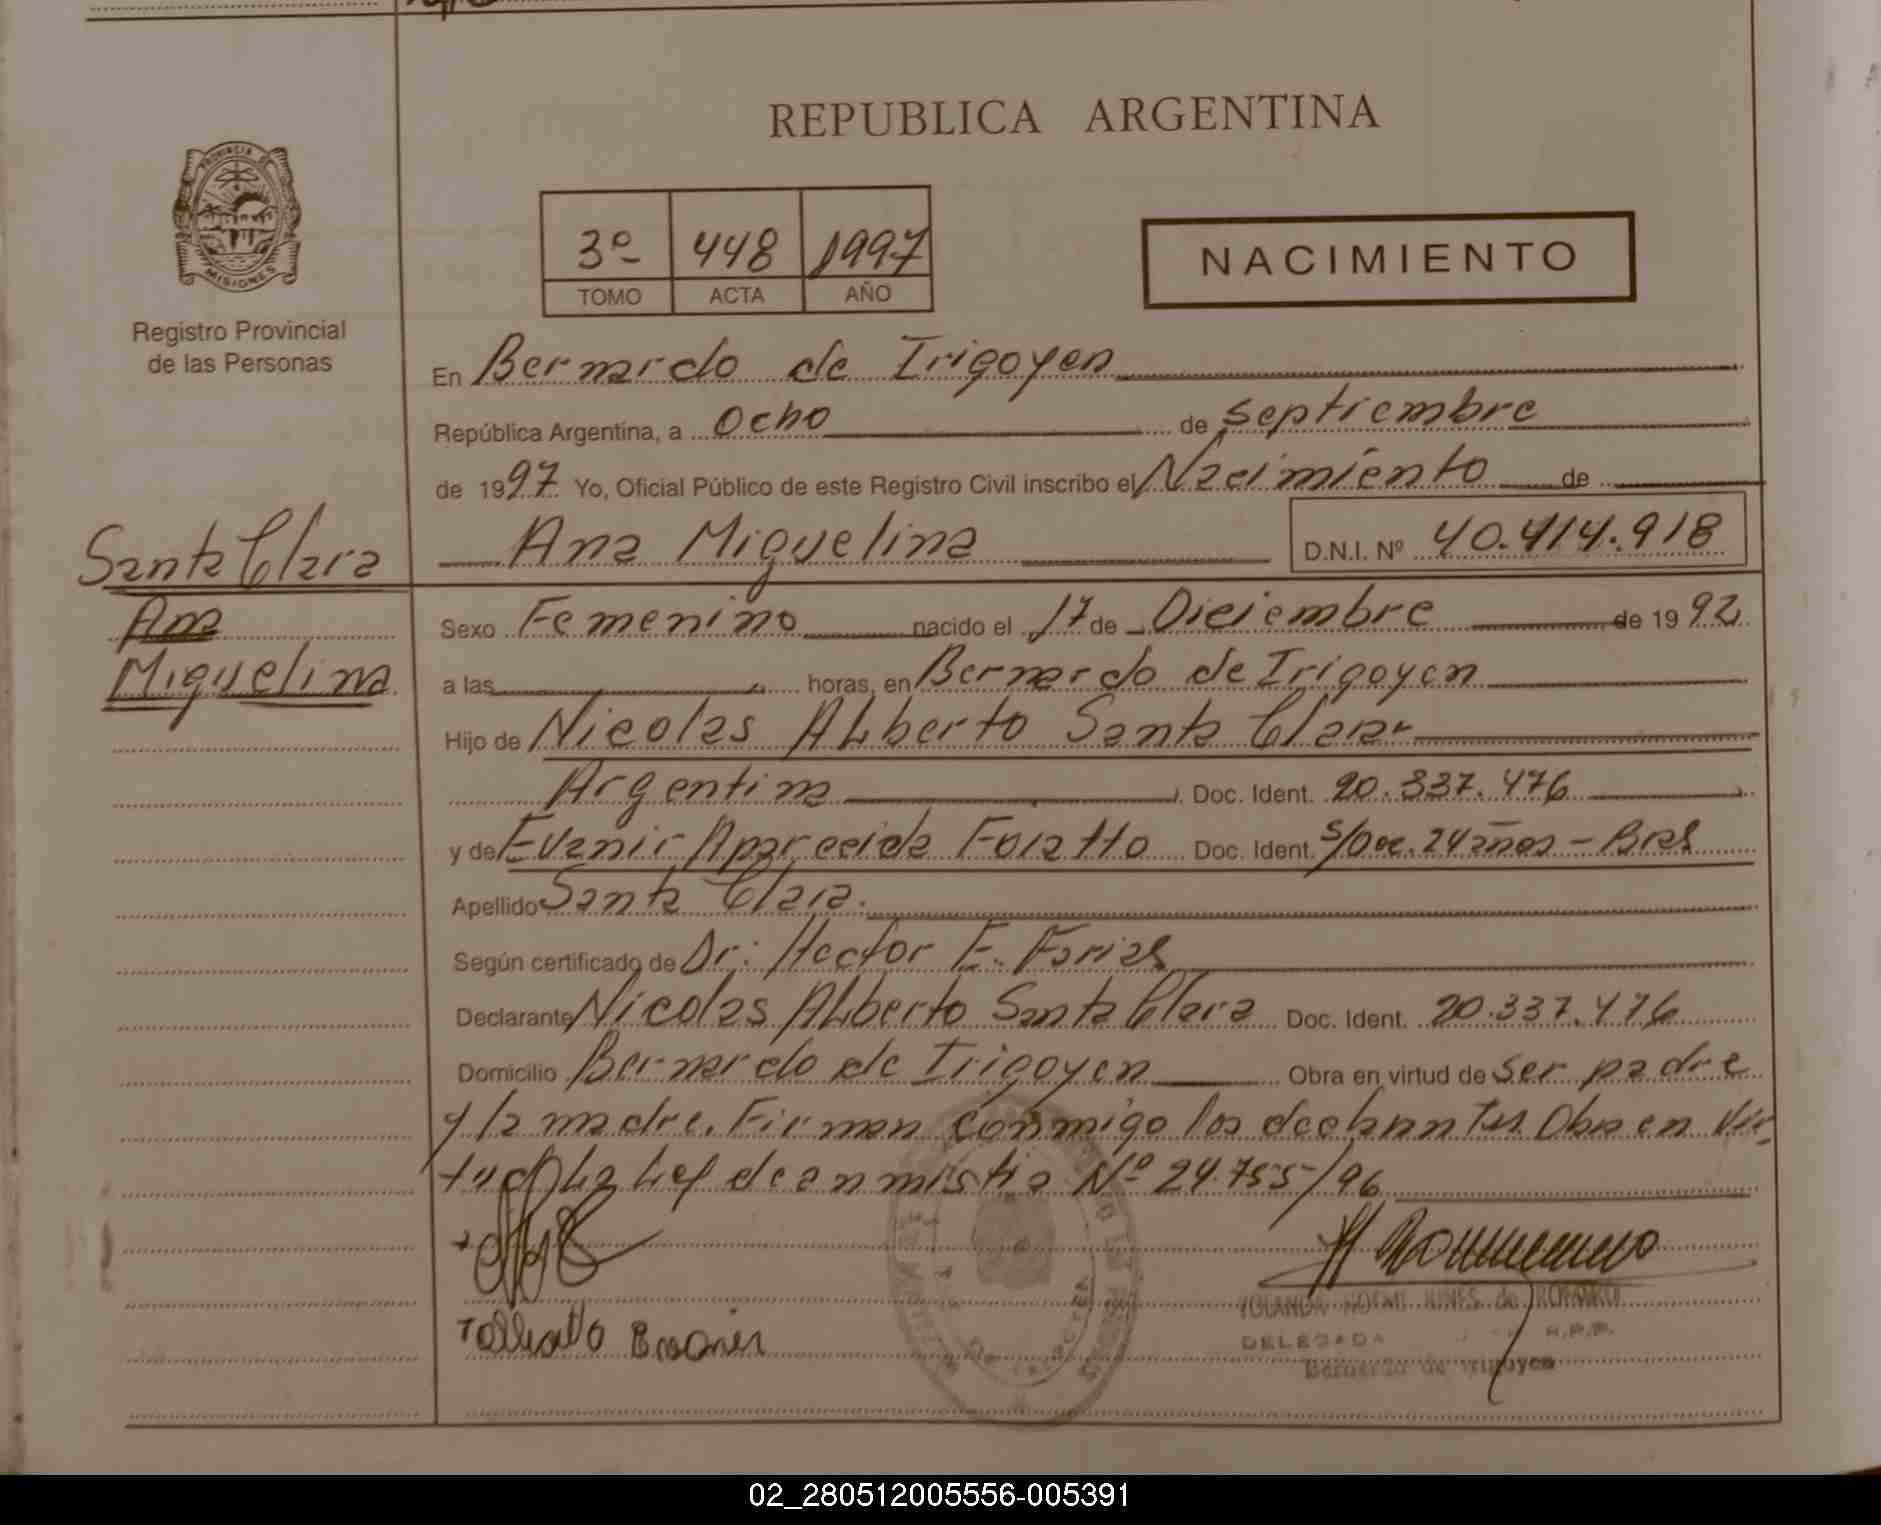 REPUBLICA ARGENTINA
PROVINCIA DE
MISIONES
Registro Provincial
de las Personas
3º 448 1997
TOMO ACTA AÑO
NACIMIENTO
En Bernardo de Irigoyen
República Argentina, a Ocho de Septiembre
de 1997 Yo, Oficial Público de este Registro Civil inscribo el Nacimiento de
Ana Miguelina D.N.I. Nº 40.414.918
Santa Clara
Ana
Miguelina
Sexo Femenino nacido el 17 de Diciembre de 1992
a las horas, en Bernardo de Irigoyen
Hijo de Nicolas Alberto Santa Clara
Argentina Doc. Ident. 20.337.476
y de Evanir Aparecida Doc. Ident. S/Doc. 24 años - Bras
Apellido Santa Clara.
Según certificado de Dr: Hector E. Farias
Declarante Nicolas Alberto Santa Clara Doc. Ident. 20.337.476
Domicilio Bernardo de Irigoyen Obra en virtud de Ser padre
y la madre. Firman conmigo los declarantes. Obra en Vir
tud La Ley de anmistia Nº 24.755/96
YOLANDA NOEMI de
DELEGADA R.P.P.
Bernardo de Irigoyen
02_280512005556-005391